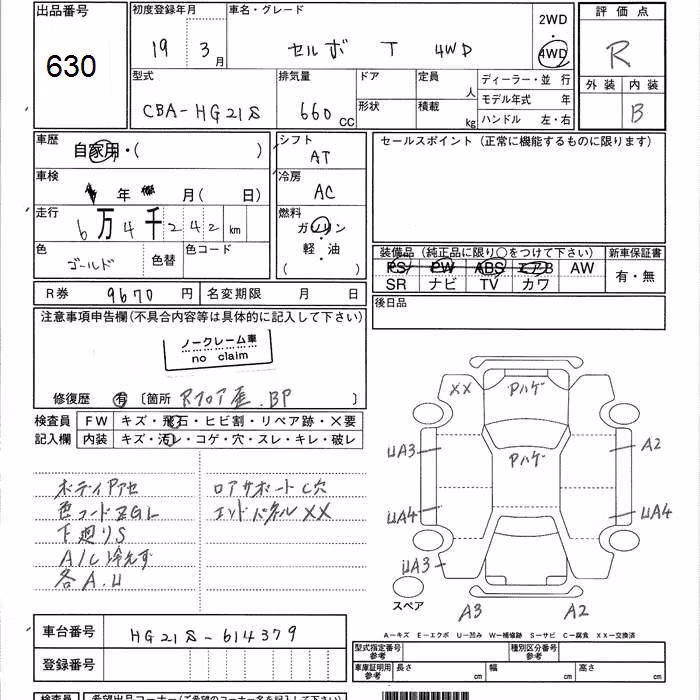 出品番号
630
初度登録年月
19 3月
車名・グレード
セルボ T 4WD
2WD
4WD
評価点
R
外装 内装
B
型式
CBA-HG21S
排気量
660cc
ドア
形状
定員 人
積載 kg
ディーラー・並 行
モデル年式 年
ハンドル 左・右
車歴
自家用・( )
車検
年 月(日)
走行
6万4千242km
色
ゴールド
色替
色コード
シフト
AT
冷房
AC
燃料
ガソリン
・
軽・油
( )
セールスポイント(正常に機能するものに限ります)
装備品(純正品に限り○をつけて下さい)
PS PW ABS エアB AW
SR ナビ TV カワ
新車保証書
有・無
R券 9670円
名変期限 月 日
後日品
注意事項申告欄(不具合内容等は具体的に記入して下さい)
ノークレーム車
no claim
修復歴 有 〔箇所 Rフロア歪.BP
検査員 FW キズ・飛石・ヒビ割・リペア跡・✕要
記入欄 内装 キズ・汚レ・コゲ・穴・スレ・キレ・破レ
ボディアセ
色コードZGL
下廻りS
A/C冷えず
各A.U
ロアサポートC穴
エンドパネルXX
XX
Pハゲ
Pハゲ
UA3
A2
UA4
UA4
UA3
A3
A2
スペア
A-キズ E-エクボ U-凹み W-補修跡 S-サビ C-腐食 XX-交換済
車台番号
HG21S-614379
登録番号
型式指定番号
参考
種別区分番号
参考
車庫証明用
参考
長さ cm
幅 cm
高さ cm
検査員
希望出品コーナー(ご希望のコーナー名を記入下さい)